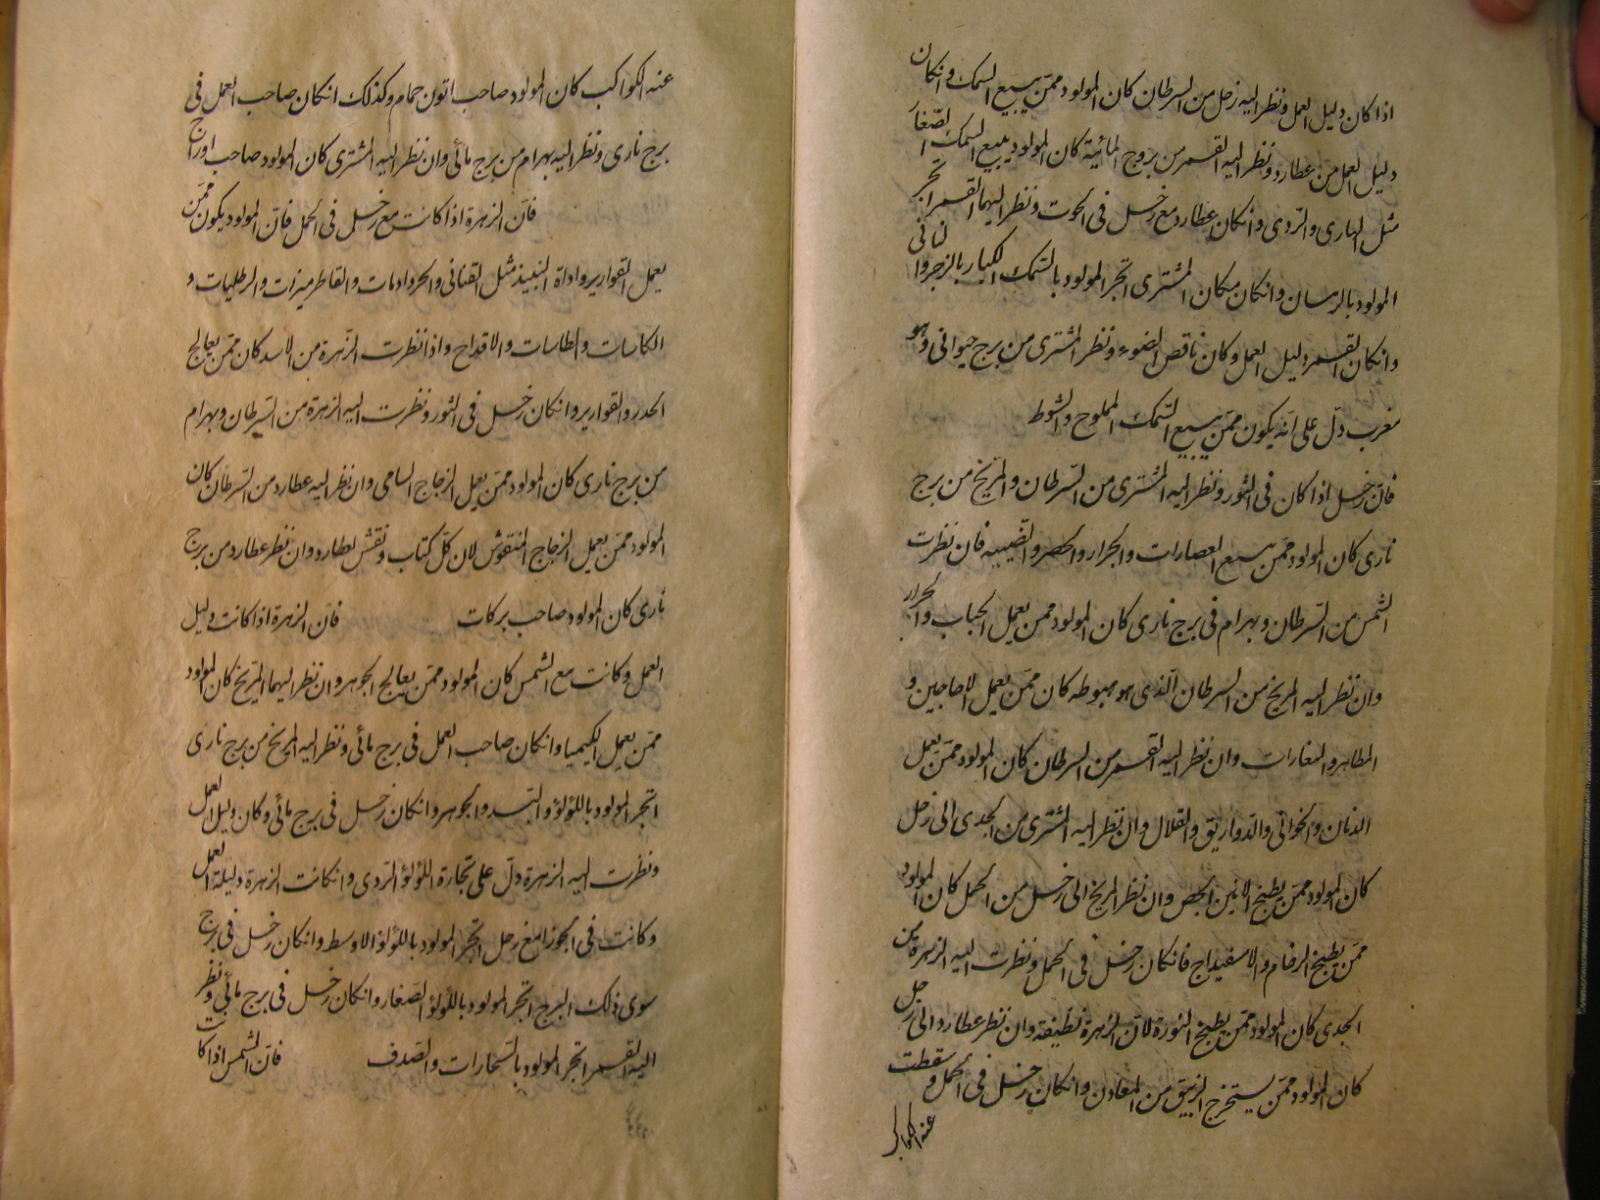 اذا كان دليل العمل ونظر اليه زحل من السرطان كان المولود ممن يبيع السمك وانكان
دليل العمل من عطارد ونظر اليه القمر من بروج المائية كان المولود يبيع السمك الصغار
مثل الهارى والردى وانكان عطارد مع زحل فى الحوت ونظر اليهما القمر اتجر
المولود بالرسان وانكان مكان المشترى اتجر المولود بالسمك الكبار بالزجر و
وانكان القمر دليل العمل وكان ناقص الضوء ونظر المشترى من برج حيوانى وهو
مغرب دل على انه يكون ممن يبيع السمك المملوح والشوط
فان زحل اذا كان فى الثور ونظر اليه المشترى من السرطان والمريخ من برج
نارى كان المولود ممن يبيع العصارات والجرار والحصر فان نظرت
الشمس من السرطان وبهرام فى برج نارى كان المولود ممن يعمل الحباب والجرار
وان نظر اليه المريخ من السرطان الذى هو هبوطه كان ممن يعمل الاجاجين و
المطاهر والغارات وان نظر اليه القمر من السرطان كان المولود ممن يعمل
الدنان والخوابى والدواريق والقلال وان نظر اليه المشترى من الجدى الى زحل
كان المولود ممن يطبخ الجص وان نظر المريخ الى زحل من الحمل كان المولود
ممن يطبخ الرخام والاسفيداج فانكان زحل فى الحمل ونظرت اليه الزهرة من
الجدى كان المولود ممن يطبخ النورة لان الزهرة نظيفة وان نظر عطارد الى زحل
كان المولود ممن يستخرج الزيبق من المعادن وانكان زحل فى الحمل وسقطت
عنه الكواكب
عنه الكواكب كان المولود صاحب اتون حمام وكذلك انكان صاحب العمل فى
برج نارى ونظر اليه بهرام من برج مائى وان نظر اليه المشترى كان المولود صاحب
فان الزهرة اذا كانت مع زحل فى الحمل فان المولود يكون ممن
يعمل القوارير واداة النبيذ مثل القنانى والخردادمات والقاطرميزات والرطليات و
الكاسات والطاسات والاقداح واذا نظرت الزهرة من الاسد كان ممن يعالج
القوارير وانكان زحل فى الثور ونظرت اليه الزهرة من السرطان وبهرام
من برج نارى كان المولود ممن يعمل الزجاج السامى وان نظر اليه عطارد من السرطان كان
المولود ممن يعمل الزجاج المنقوش لان كل كتاب ونقش لعطارد وان نظر عطارد من برج
نارى كان المولود صاحب بركات فان الزهرة اذا كانت دليل
العمل وكانت مع الشمس كان المولود ممن يعالج الجوهر وان نظر اليهما المريخ كان المولود
ممن يعمل الكيميا وانكان صاحب العمل فى برج مائى ونظر اليه المريخ من برج نارى
اتجر المولود باللؤلؤ والبسد والجوهر وانكان زحل فى برج مائى وكان دليل العمل
ونظرت اليه الزهرة دل على تجارة اللؤلؤ الردى وانكانت الزهرة دليلة العمل
وكانت فى الجوزا مع زحل اتجر المولود باللؤلؤ الاوسط وانكان زحل فى برج
سوى ذلك البرج اتجر المولود باللؤلؤ الصغار وانكان زحل فى برج مائى ونظر
اليه القمر اتجر المولود بالمحارات والصدف فان الشمس اذا كانت